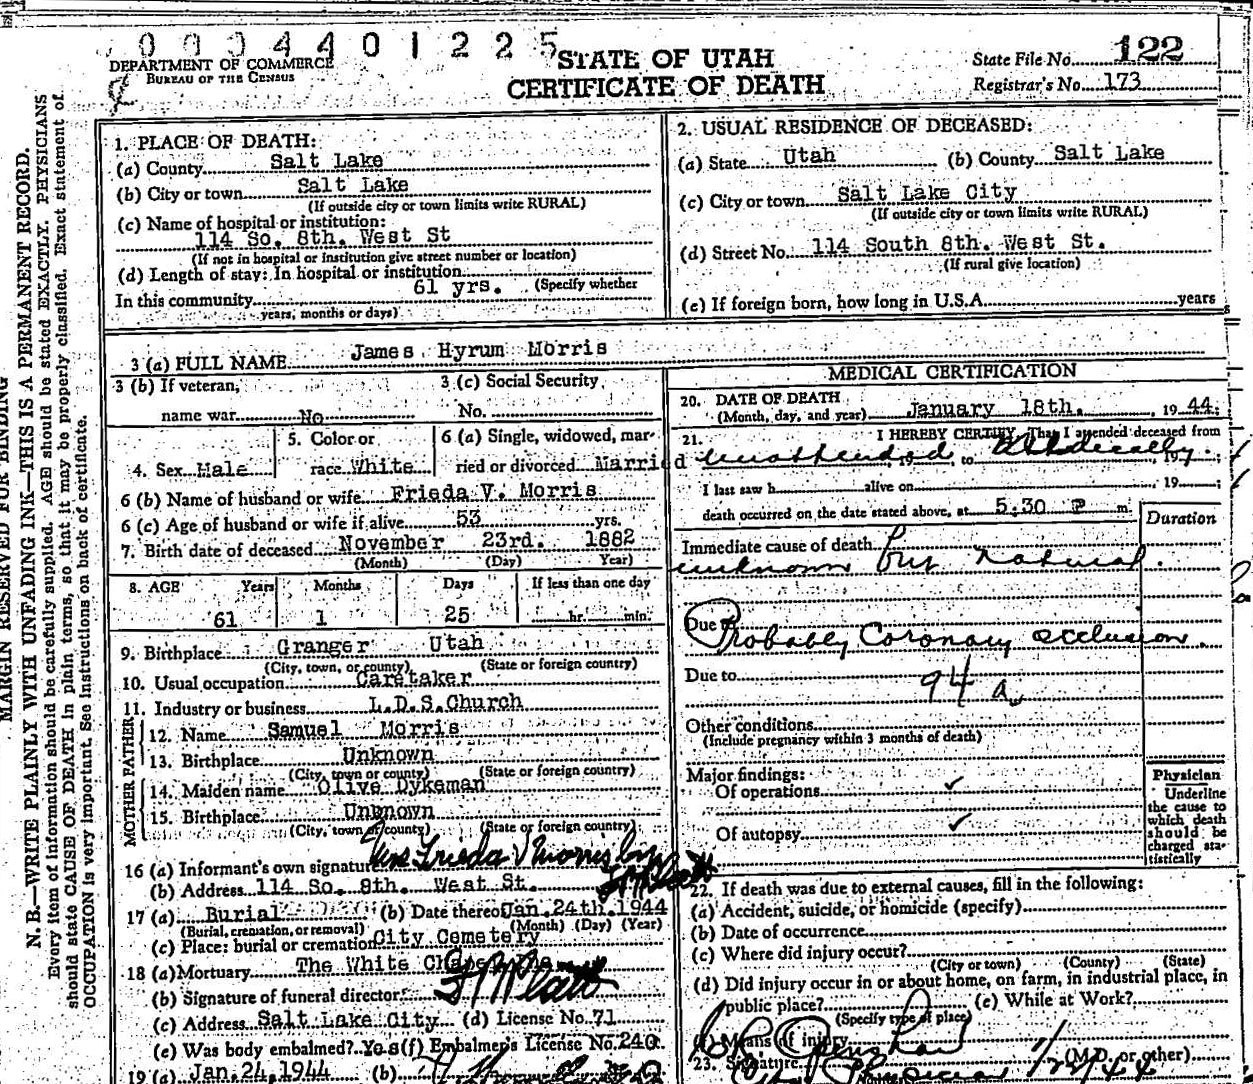 0 0 0 4 4 0 1 2 2 5
DEPARTMENT OF COMMERCE
BUREAU OF THE CENSUS
STATE OF UTAH
CERTIFICATE OF DEATH
State File No. 122
Registrar's No. 173
MARGIN RESERVED FOR BINDING
N. B.—WRITE PLAINLY WITH UNFADING INK—THIS IS A PERMANENT RECORD.
Every item of information should be carefully supplied. AGE should be stated EXACTLY. PHYSICIANS
should state CAUSE OF DEATH in plain terms, so that it may be properly classified. Exact statement of
OCCUPATION is very important. See instructions on back of certificate.
1. PLACE OF DEATH:
(a) County Salt Lake
(b) City or town Salt Lake
(If outside city or town limits write RURAL)
(c) Name of hospital or institution:
114 So. 8th. West St
(If not in hospital or institution give street number or location)
(d) Length of stay: In hospital or institution
61 yrs. (Specify whether
In this community
years, months or days)
2. USUAL RESIDENCE OF DECEASED:
(a) State Utah (b) County Salt Lake
(c) City or town Salt Lake City
(If outside city or town limits write RURAL)
(d) Street No. 114 South 8th. West St.
(If rural give location)
(e) If foreign born, how long in U.S.A. years
3 (a) FULL NAME James Hyrum Morris
3 (b) If veteran,
name war No
3 (c) Social Security
No.
4. Sex Male
5. Color or
race White
6 (a) Single, widowed, mar-
ried or divorced Married
6 (b) Name of husband or wife Frieda V. Morris
6 (c) Age of husband or wife if alive 53 yrs.
7. Birth date of deceased November 23rd. 1882
(Month) (Day) Year)
8. AGE Years Months Days If less than one day
61 1 25 hr. min.
9. Birthplace Granger Utah
(City, town, or county) (State or foreign country)
10. Usual occupation Caretaker
11. Industry or business L.D.S.Church
FATHER
12. Name Samuel Morris
13. Birthplace Unknown
(City, town or county) (State or foreign country)
MOTHER
14. Maiden name Olive Dykeman
15. Birthplace Unknown
(City, town or county) (State or foreign country)
16 (a) Informant's own signature Mrs Frieda Morris by
(b) Address 114 So. 8th. West St.
17 (a) Burial (b) Date thereof Jan.24th.1944
(Burial, cremation, or removal) (Month) (Day) (Year)
(c) Place: burial or cremation City Cemetery
18 (a) Mortuary The White Chapel
(b) Signature of funeral director
(c) Address Salt Lake City (d) License No. 71
(e) Was body embalmed? Yes (f) Embalmer's License No. 240
19 (a) Jan.24,1944 (b)
MEDICAL CERTIFICATION
20. DATE OF DEATH
(Month, day, and year) January 18th. , 19 44.
21. I HEREBY CERTIFY, That I attended deceased from
unattended , 19 to , 19
I last saw h alive on , 19
death occurred on the date stated above, at 5:30 P m.
Duration
Immediate cause of death
unknown but natural.
Due to
Probably Coronary occlusion.
Due to 94 a
Other conditions
(Include pregnancy within 3 months of death)
Major findings:
Of operations ✓
Of autopsy ✓
Physician
Underline
the cause to
which death
should be
charged sta-
tistically
22. If death was due to external causes, fill in the following:
(a) Accident, suicide, or homicide (specify)
(b) Date of occurrence
(c) Where did injury occur?
(City or town) (County) (State)
(d) Did injury occur in or about home, on farm, in industrial place, in
public place? (e) While at Work?
(Specify type of place)
Means of injury
23. Signature (M.D. or other)
Physician